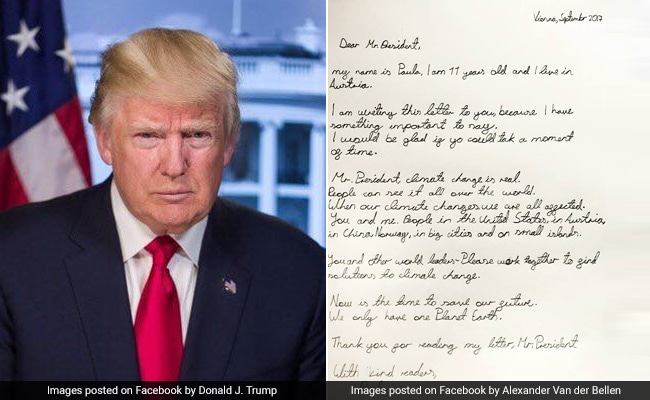 Vienna, September 2017
Dear Mr. President,
my name is Paula, I am 11 years old and I live in
Austria.
I am writing this letter to you, because I have
something important to say.
I would be glad if yo could tak a moment
of time.
Mr. President, climate change is real.
People can see it all over the world.
When our climate changes we are all affected.
You and me. People in the United States, in Austria,
in China, Norway, in big cities and on small islands.
You and other world leaders-Please work together to find
solutions to climate change.
Now is the time to save our future.
We only have one Planet Earth.
Thank you for reading my letter, Mr. President
With kind
Images posted on Facebook by Donald J. Trump
Images posted on Facebook by Alexander Van der Bellen